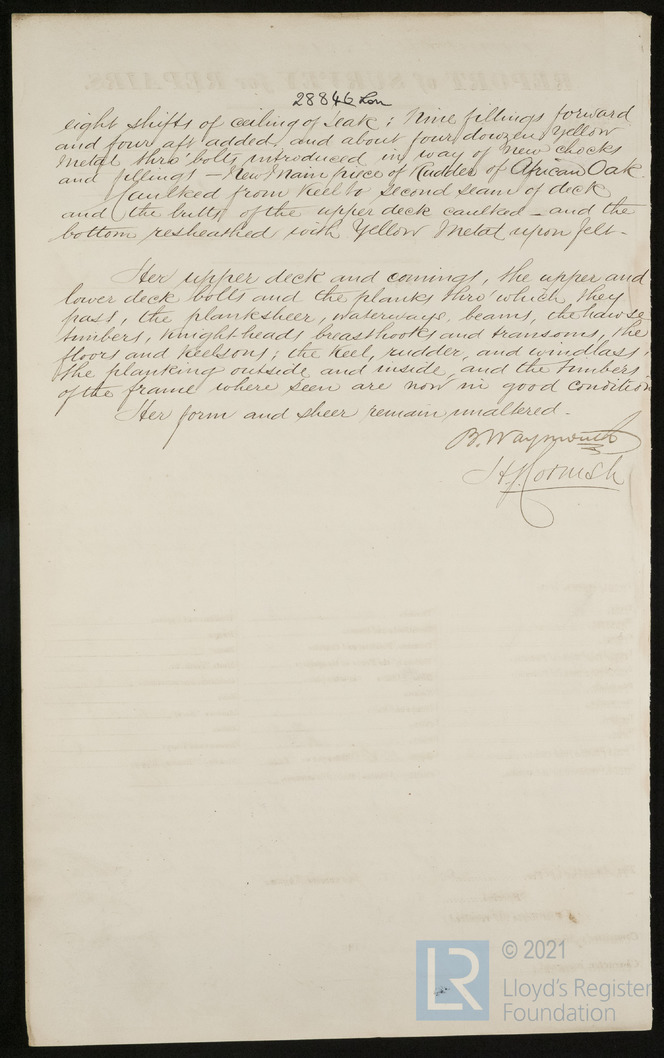 28846 Lon
eight shifts of ceiling of Teak; Nine fillings forward
and four aft added, and about four dowzen Yellow
Metal thro' bolts introduced in way of new chocks
and fillings – New Main piece of Rudder of African Oak.
Caulked from Keel to second seam of deck
and the butts of the upper deck caulked – and the
bottom resheathed with Yellow Metal upon felt –
Her upper deck and comings, the upper and
lower deck bolts and the planks thro' which they
pass, the planksheer, waterways, beams, the hawse
timbers, Knightheads breasthooks and transoms, the
floors and Keelsons; the Keel, rudder, and windlass;
the planking outside and inside, and the timbers
of the frame where seen are now in good condition
Her form and sheer remain unaltered –
B. Waymouth
H. J. Cornish
REPORT of SURVEY for REPAIRS.
LR
© 2021
Lloyd's Register
Foundation